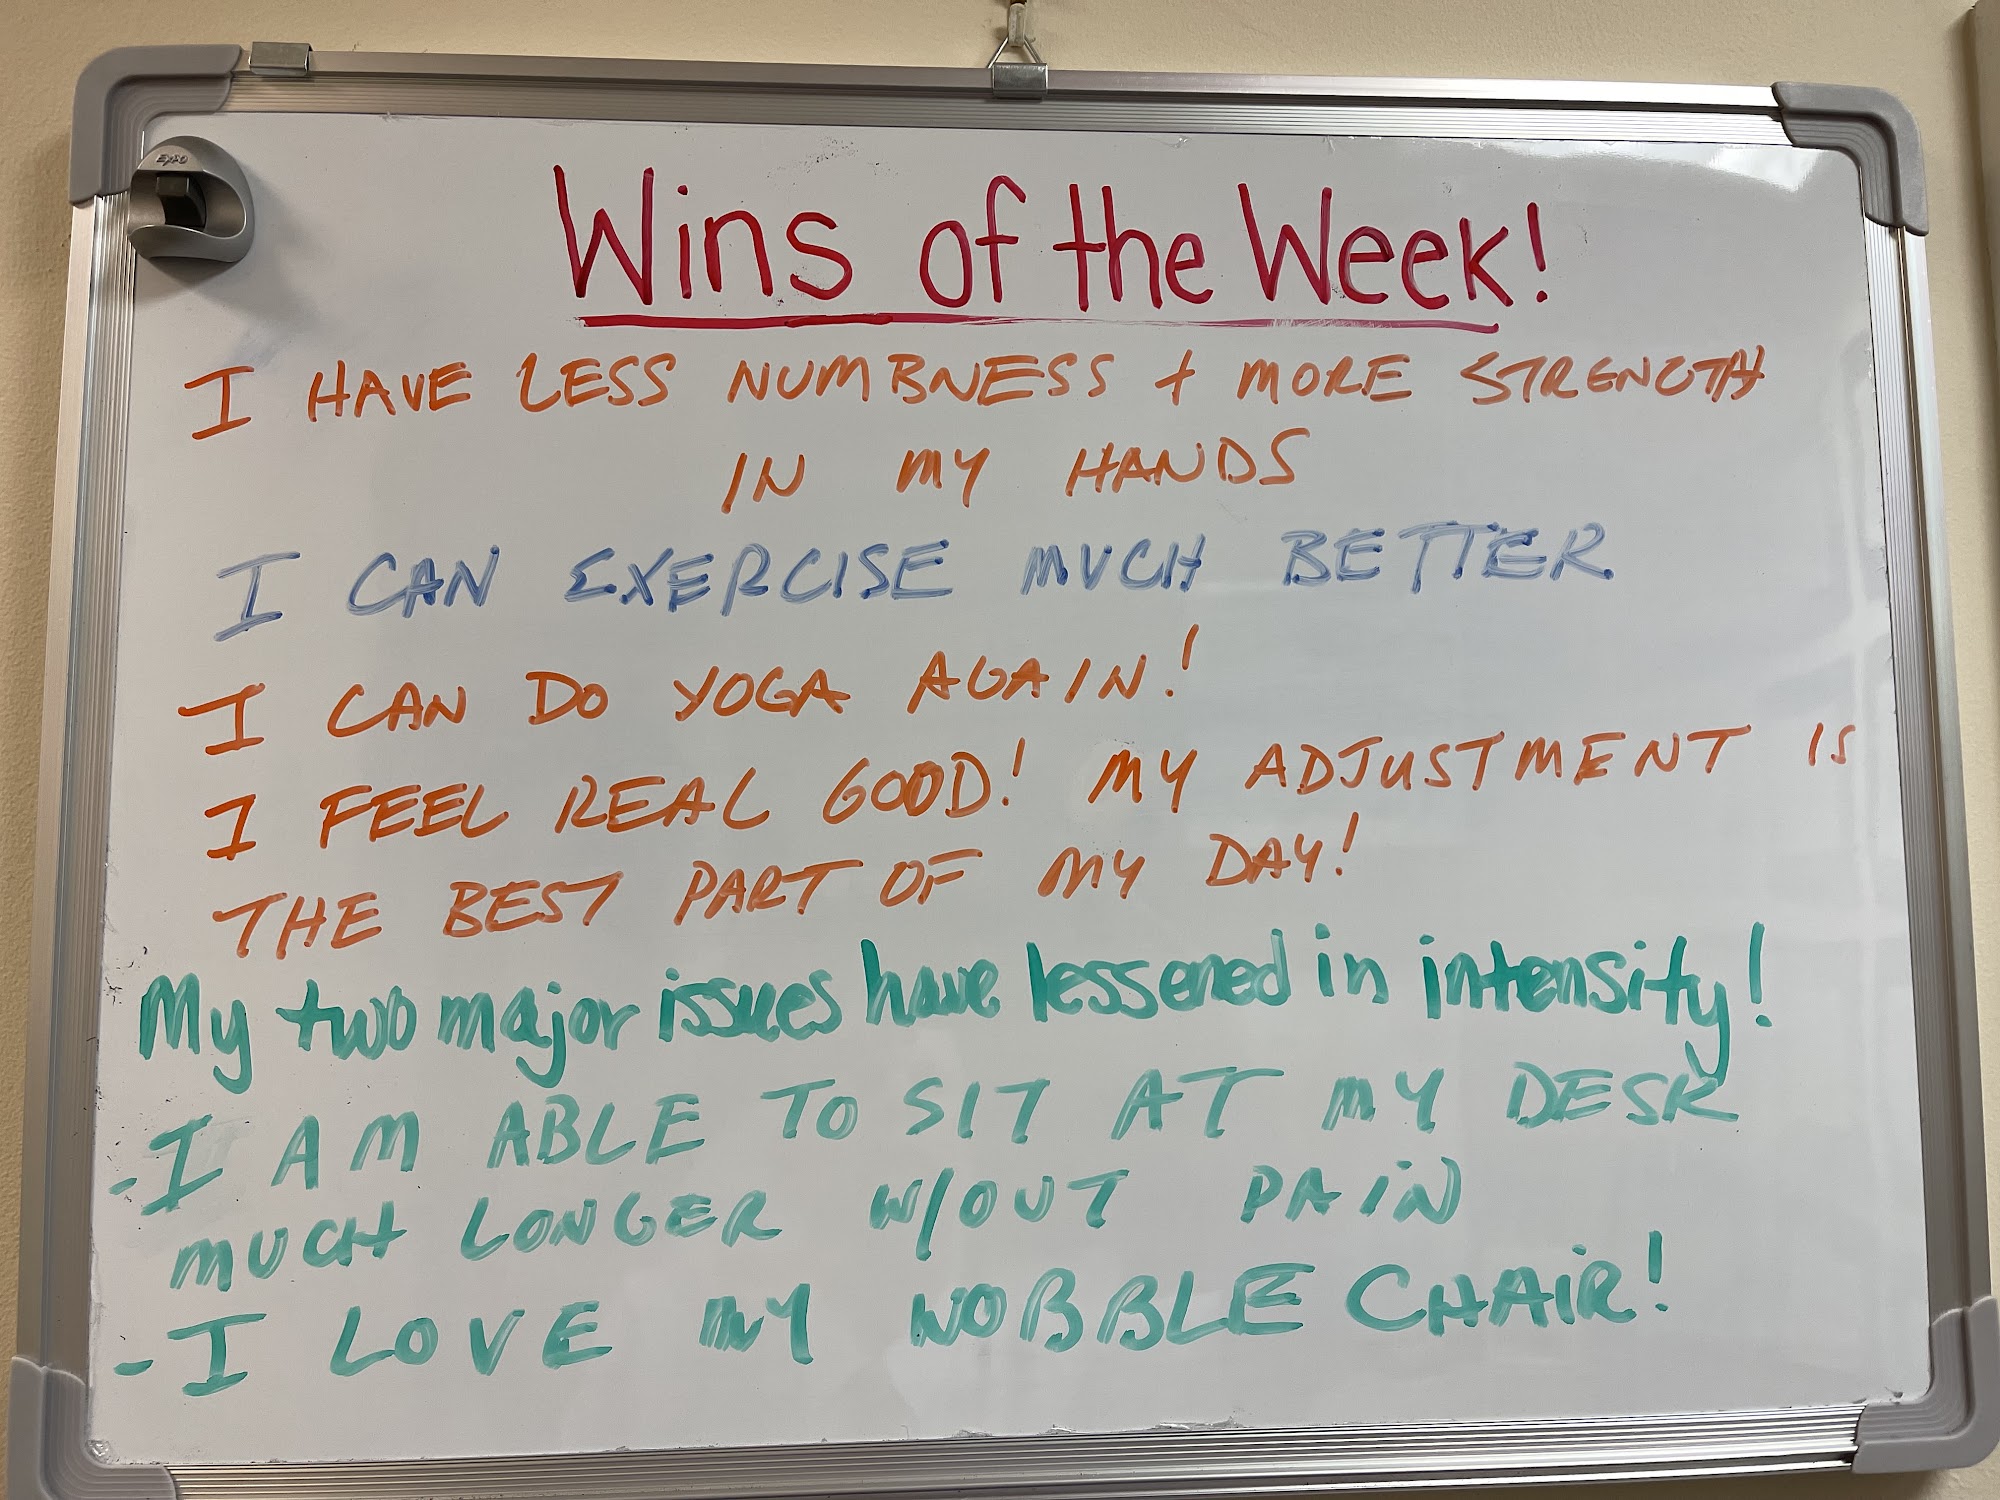 EXPO
Wins of the Week!
I HAVE LESS NUMBNESS + MORE STRENGTH
IN MY HANDS
I CAN EXERCISE MUCH BETTER
I CAN DO YOGA AGAIN!
I FEEL REAL GOOD! MY ADJUSTMENT IS
THE BEST PART OF MY DAY!
My two major issues have lessened in intensity!
- I AM ABLE TO SIT AT MY DESK
MUCH LONGER W/OUT PAIN
- I LOVE MY WOBBLE CHAIR!